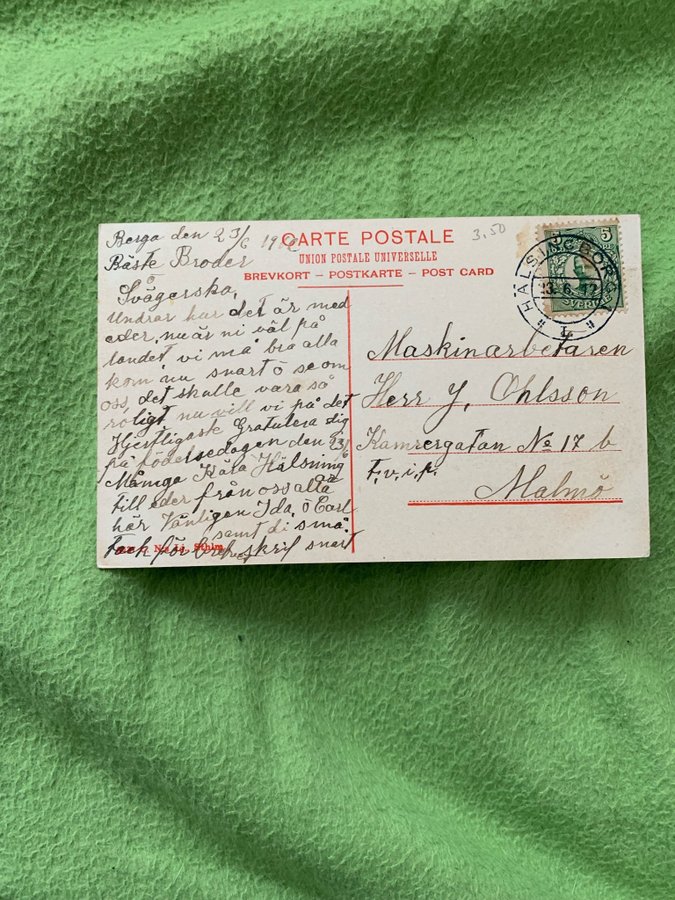 Berga den 23/6 1912
Bäste Broder
Svägerska,
Undrar hur det är med
eder, nu är ni väl på
landet vi må bra alla
kom nu snart o se om
oss, det skulle vara så
roligt nu vill vi på det
Hjertligaste Gratulera dig
på födelsedagen den 23/6
Många Kära Hälsning
till eder från oss alla
här Vänligen Ida, o Carl
samt di små.
Tack för brefvet skrif snart
CARTE POSTALE
3.50
UNION POSTALE UNIVERSELLE
BREVKORT – POSTKARTE – POST CARD
5 5
SVERIGE
HÄLSINGBORG
23.6.12
L
Maskinarbetaren
Herr J, Ohlsson
Kamrergatan № 17 b
T.v.i.p.
Malmö